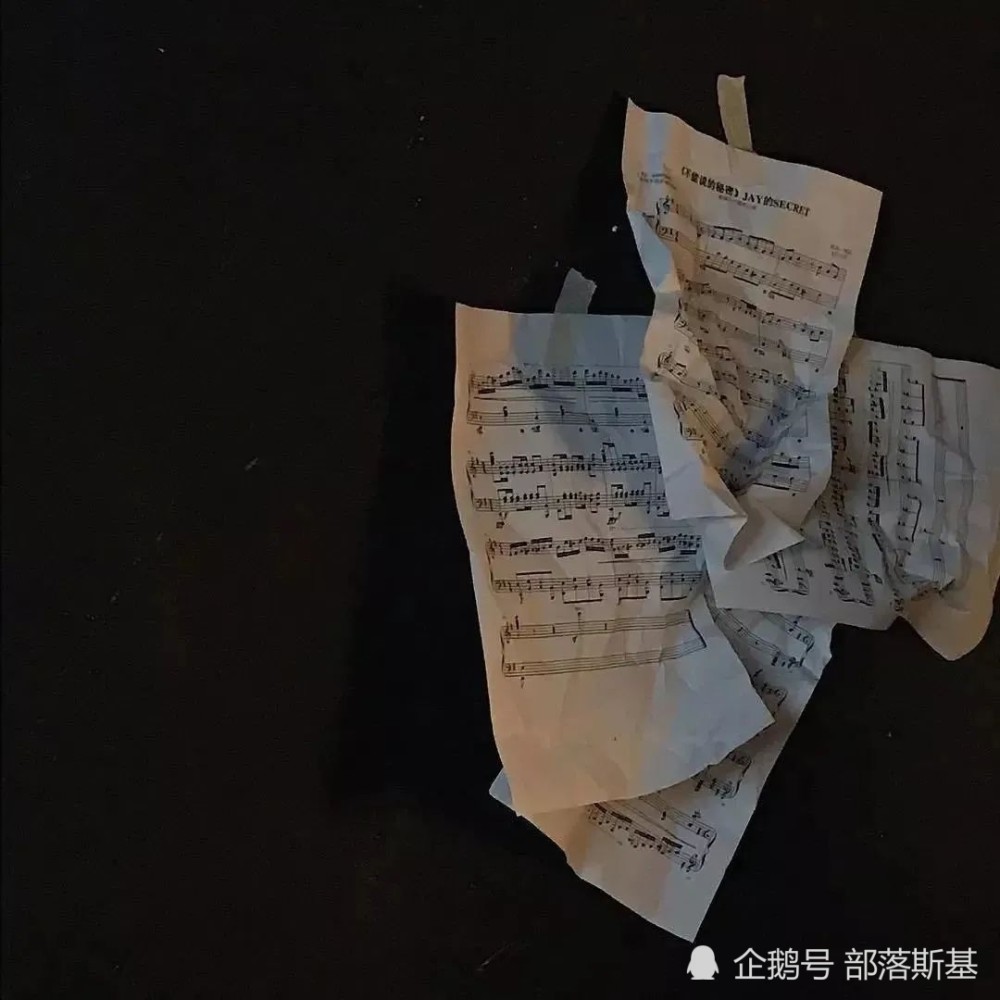 《不能说的秘密》JAY的SECRET
企鹅号 部落斯基